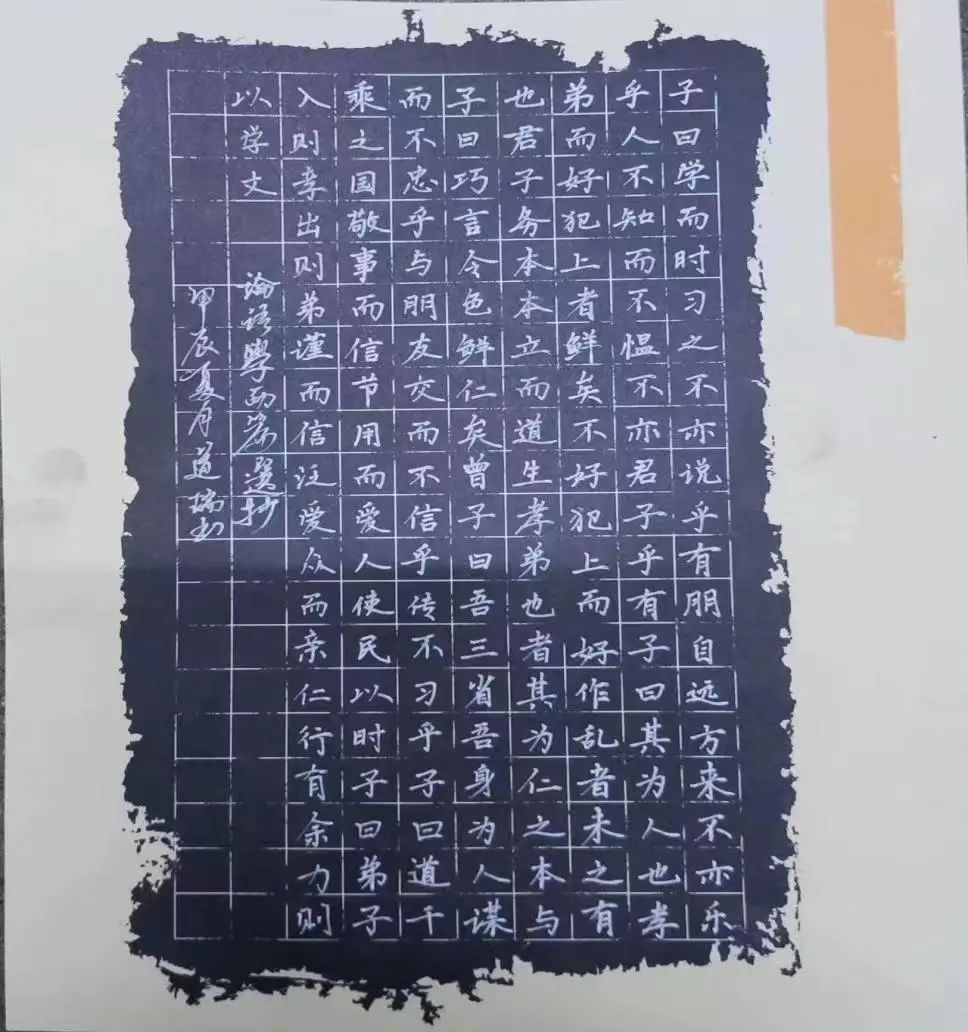 子曰学而时习之不亦说乎有朋自远方来不亦乐
乎人不知而不愠不亦君子乎有子曰其为人也孝
弟而好犯上者鲜矣不好犯上而好作乱者未之有
也君子务本本立而道生孝弟也者其为仁之本与
子曰巧言令色鲜仁矣曾子曰吾三省吾身为人谋
而不忠乎与朋友交而不信乎传不习乎子曰道千
乘之国敬事而信节用而爱人使民以时子曰弟子
入则孝出则弟谨而信泛爱众而亲仁行有余力则
以学文
論語學而篇選抄
甲辰夏月道瑞书